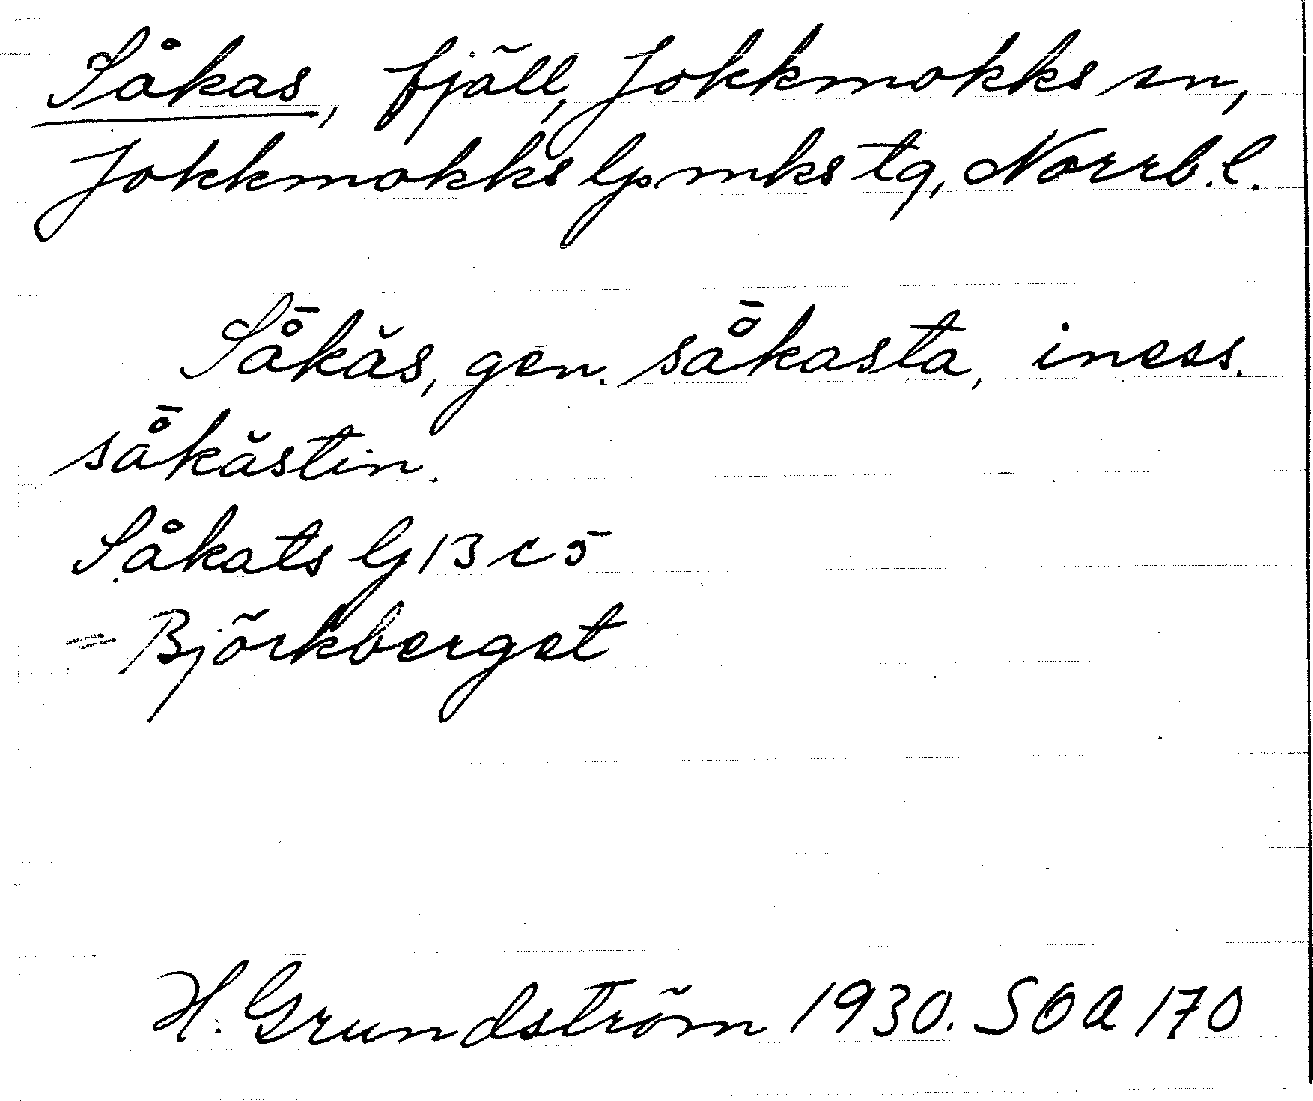 Såkas, fjäll, Jokkmokks sn,
Jokkmokks lpmks tg, Norrb.l.
Så̄kăs, gen. så̄kasta, iness.
så̄kăstin.
Såkats lj 13 c 5
= Björkberget
H. Grundström 1930. SOA 170